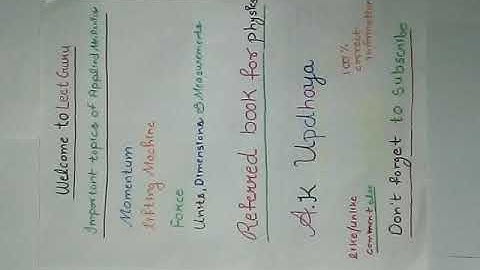 Welcome to Leet Guru
Important topics of Applied Mechanics
Momentum
Lifting Machine
Force
Units, Dimensions & Measurements
Referred book for physics
A.K Updhaya
100% correct information
like/unlike
comment also
Don't forget to subscribe